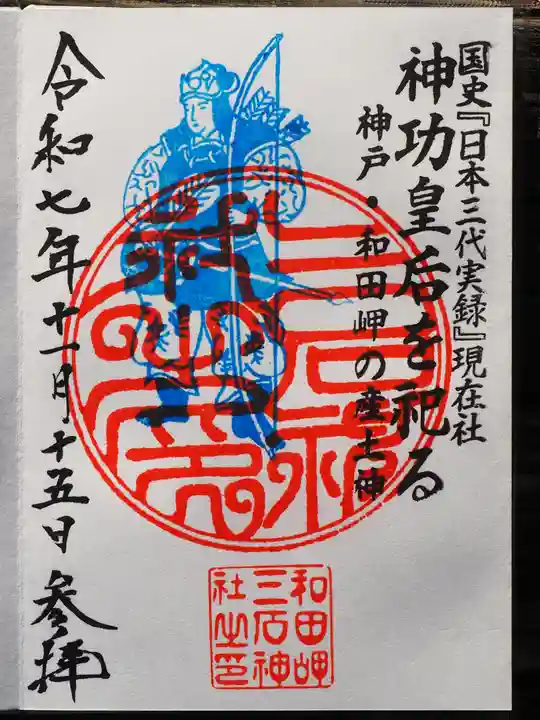 国史『日本三代実録』現在社
神功皇后を祀る
神戸・和田岬の産土神
三石神社之印
令和七年十一月十五日 参拝
和田岬
三石神
社之印